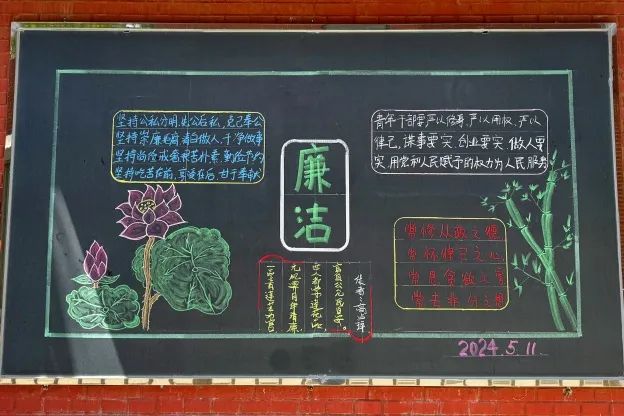 坚持公私分明,先公后私,克己奉公
坚持崇廉拒腐,清白做人,干净做事
坚持尚俭戒奢,艰苦朴素,勤俭节约
坚持吃苦在前,享受在后,甘于奉献
廉洁
青年干部要严以修身、严以用权、严以
律己,谋事要实,创业要实,做人要
实,用党和人民赋予的权力为人民服务
常修从政之德
常怀律己之心
常思贪欲之害
常去非分之想
2024.5.11.